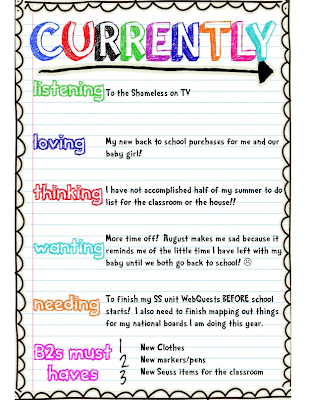 CURRENTLY
listening To the Shameless on TV
loving My new back to school purchases for me and our
baby girl!
thinking I have not accomplished half of my summer to do
list for the classroom or the house!!
More time off! August makes me sad because it
wanting reminds me of the little time I have left with my
baby until we both go back to school! ☹
needing To finish my SS unit WebQuests BEFORE school
starts! I also need to finish mapping out things
for my national boards I am doing this year.
B2s must haves
1 New Clothes
2 New markers/pens
3 New Seuss items for the classroom